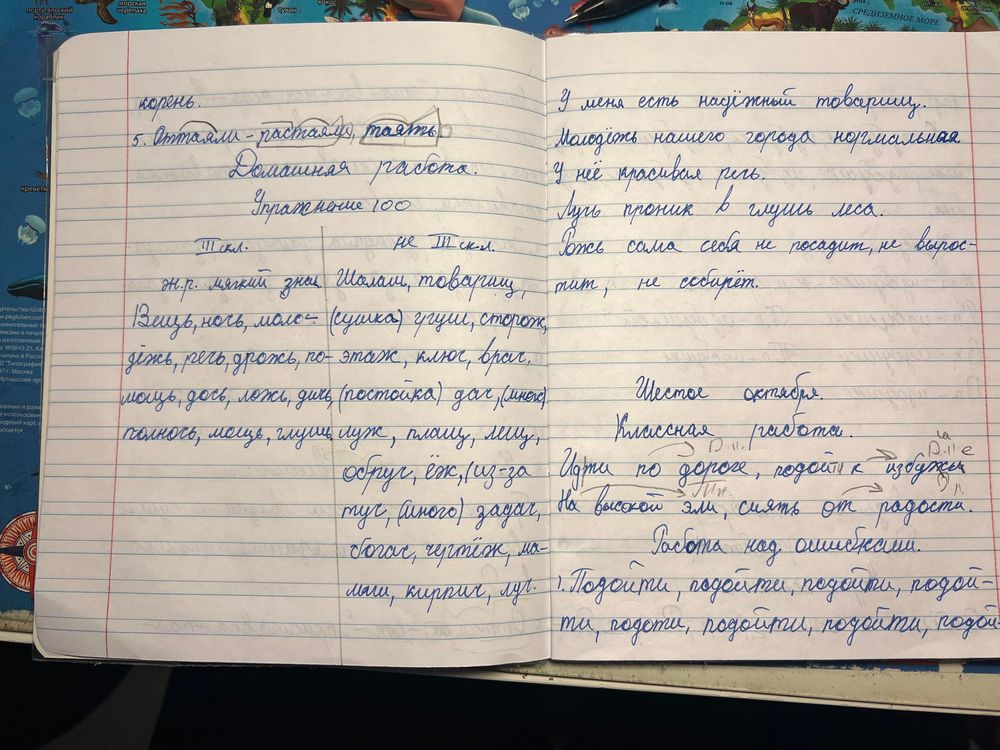 португальский кораблик
морская черепаха
тукан
кокос
СРЕДИЗЕМНОЕ МОРЕ
корень.
5. Оттаяли - растаяли, таять
Домашняя работа.
Упражнение 100
III скл.
ж.р. мягкий знак
Вещь, ночь, моло-
дёжь, речь, дрожь, по-
мощь, дочь, ложь, дичь,
полночь, мощь, глушь
не III скл.
Шалаш, товарищ,
(сушка) груш, сторож,
этаж, ключ, врач,
(постойка) дач, (много)
луж, плащ, лещ,
обруч, ёж, (из-за
туч, (много) задач,
богач, чертёж, ма-
лыш, кирпич, луч.
У меня есть надёжный товарищ.
Молодёжь нашего города нормальная
У неё красивая речь.
Лучь проник в глушь леса.
Рожь сама себя не посадит, не вырос-
тит, не соберёт.
Шестое октября.
Классная работа.
Идти по дороге, подойти к избужке
На высокой эли, сиять от радости.
Работа над ошибками.
1. Подойти, подойти, подойти, подой-
ти, подоти, подойти, подойти, подой-